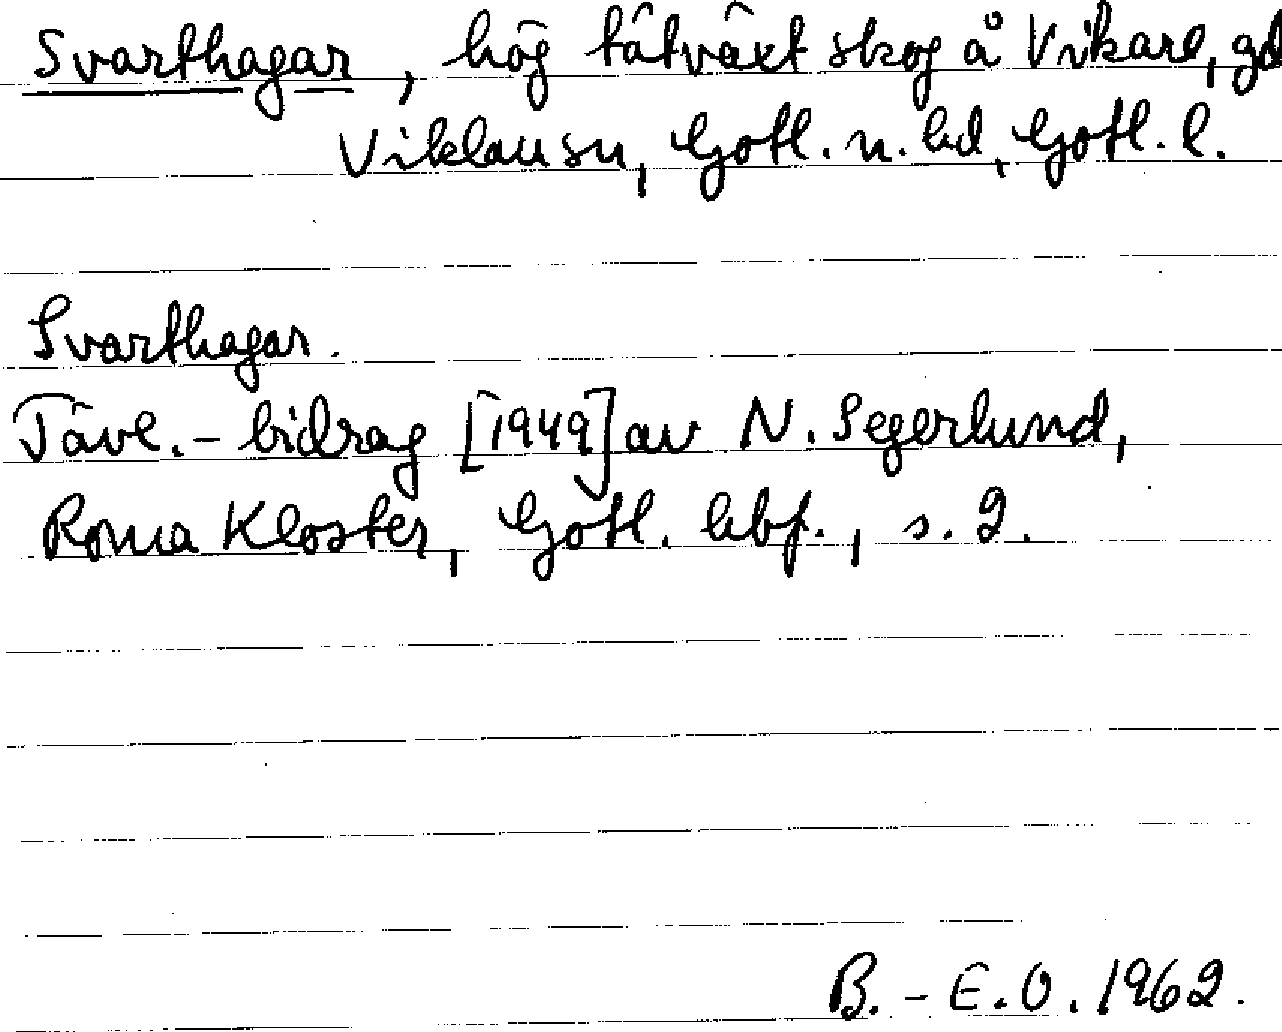 Svarthagar, hög tätväxt skog å Vikare, gd
Viklau sn, Gotl. n. hd, Gotl. l.
Svarthagar.
Tävl.-bidrag [1949] av N. Segerlund,
Roma Kloster, Gotl. hbf., s. 2.
B.-E.O. 1962.